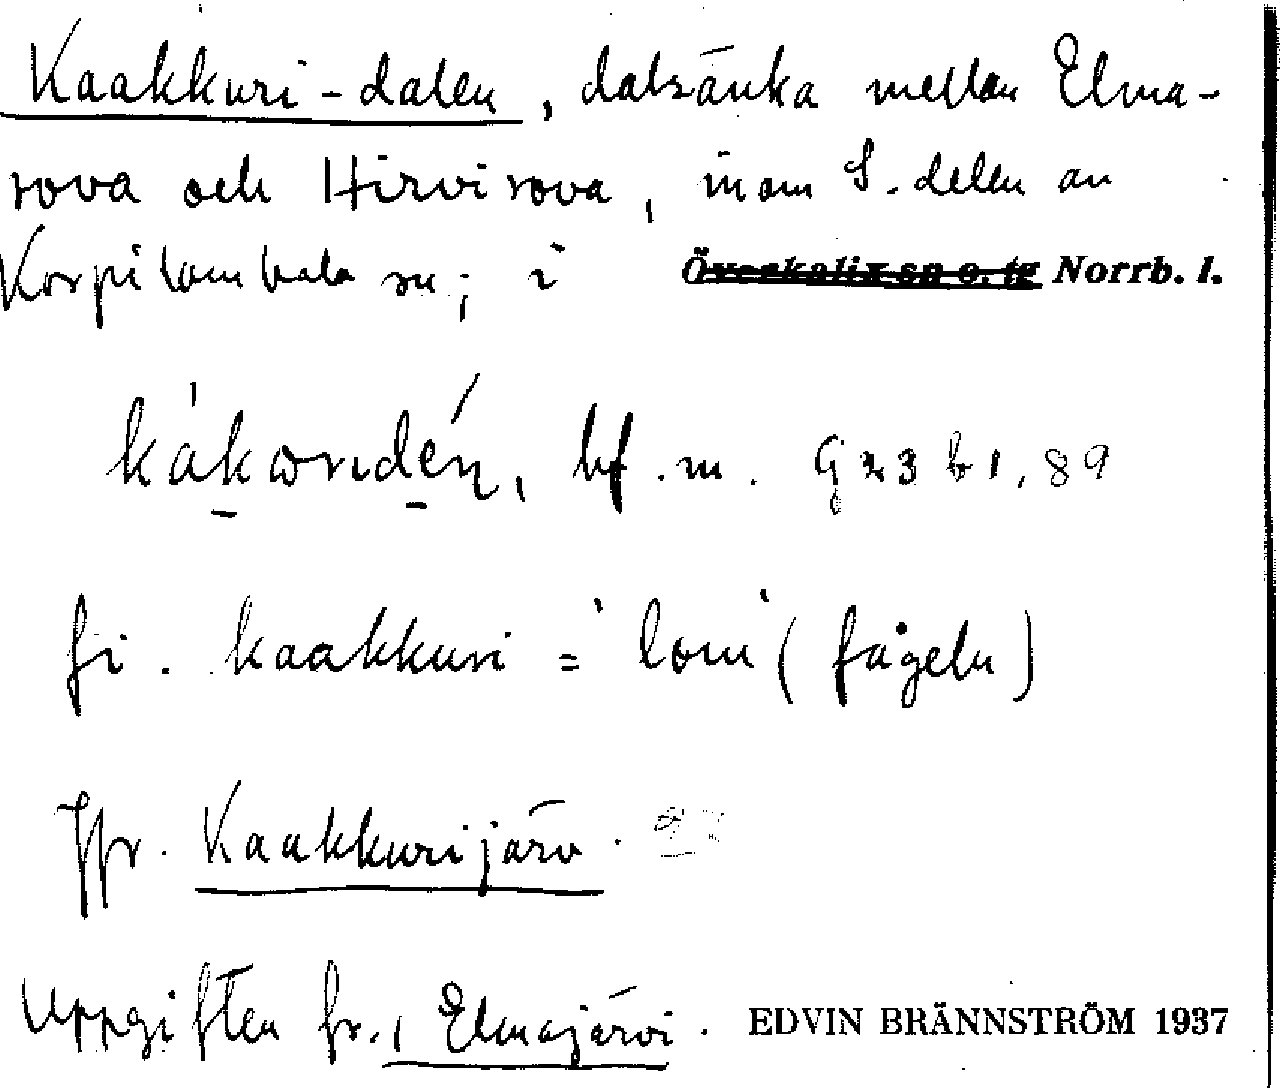 Kaakkuri-dalen, dalsänka mellan Elma-
rova och Hirvirova, inom S. delen av
Korpilombolo sn; i Överkalix sn o. tg Norrb. l.
kákωridén, bf. m. G 23 b 1, 89
fi. kaakkuri = 'lom' (fågeln)
Jfr. Kaakkurijärv.
Uppgiften fr. Elmajärvi. EDVIN BRÄNNSTRÖM 1937